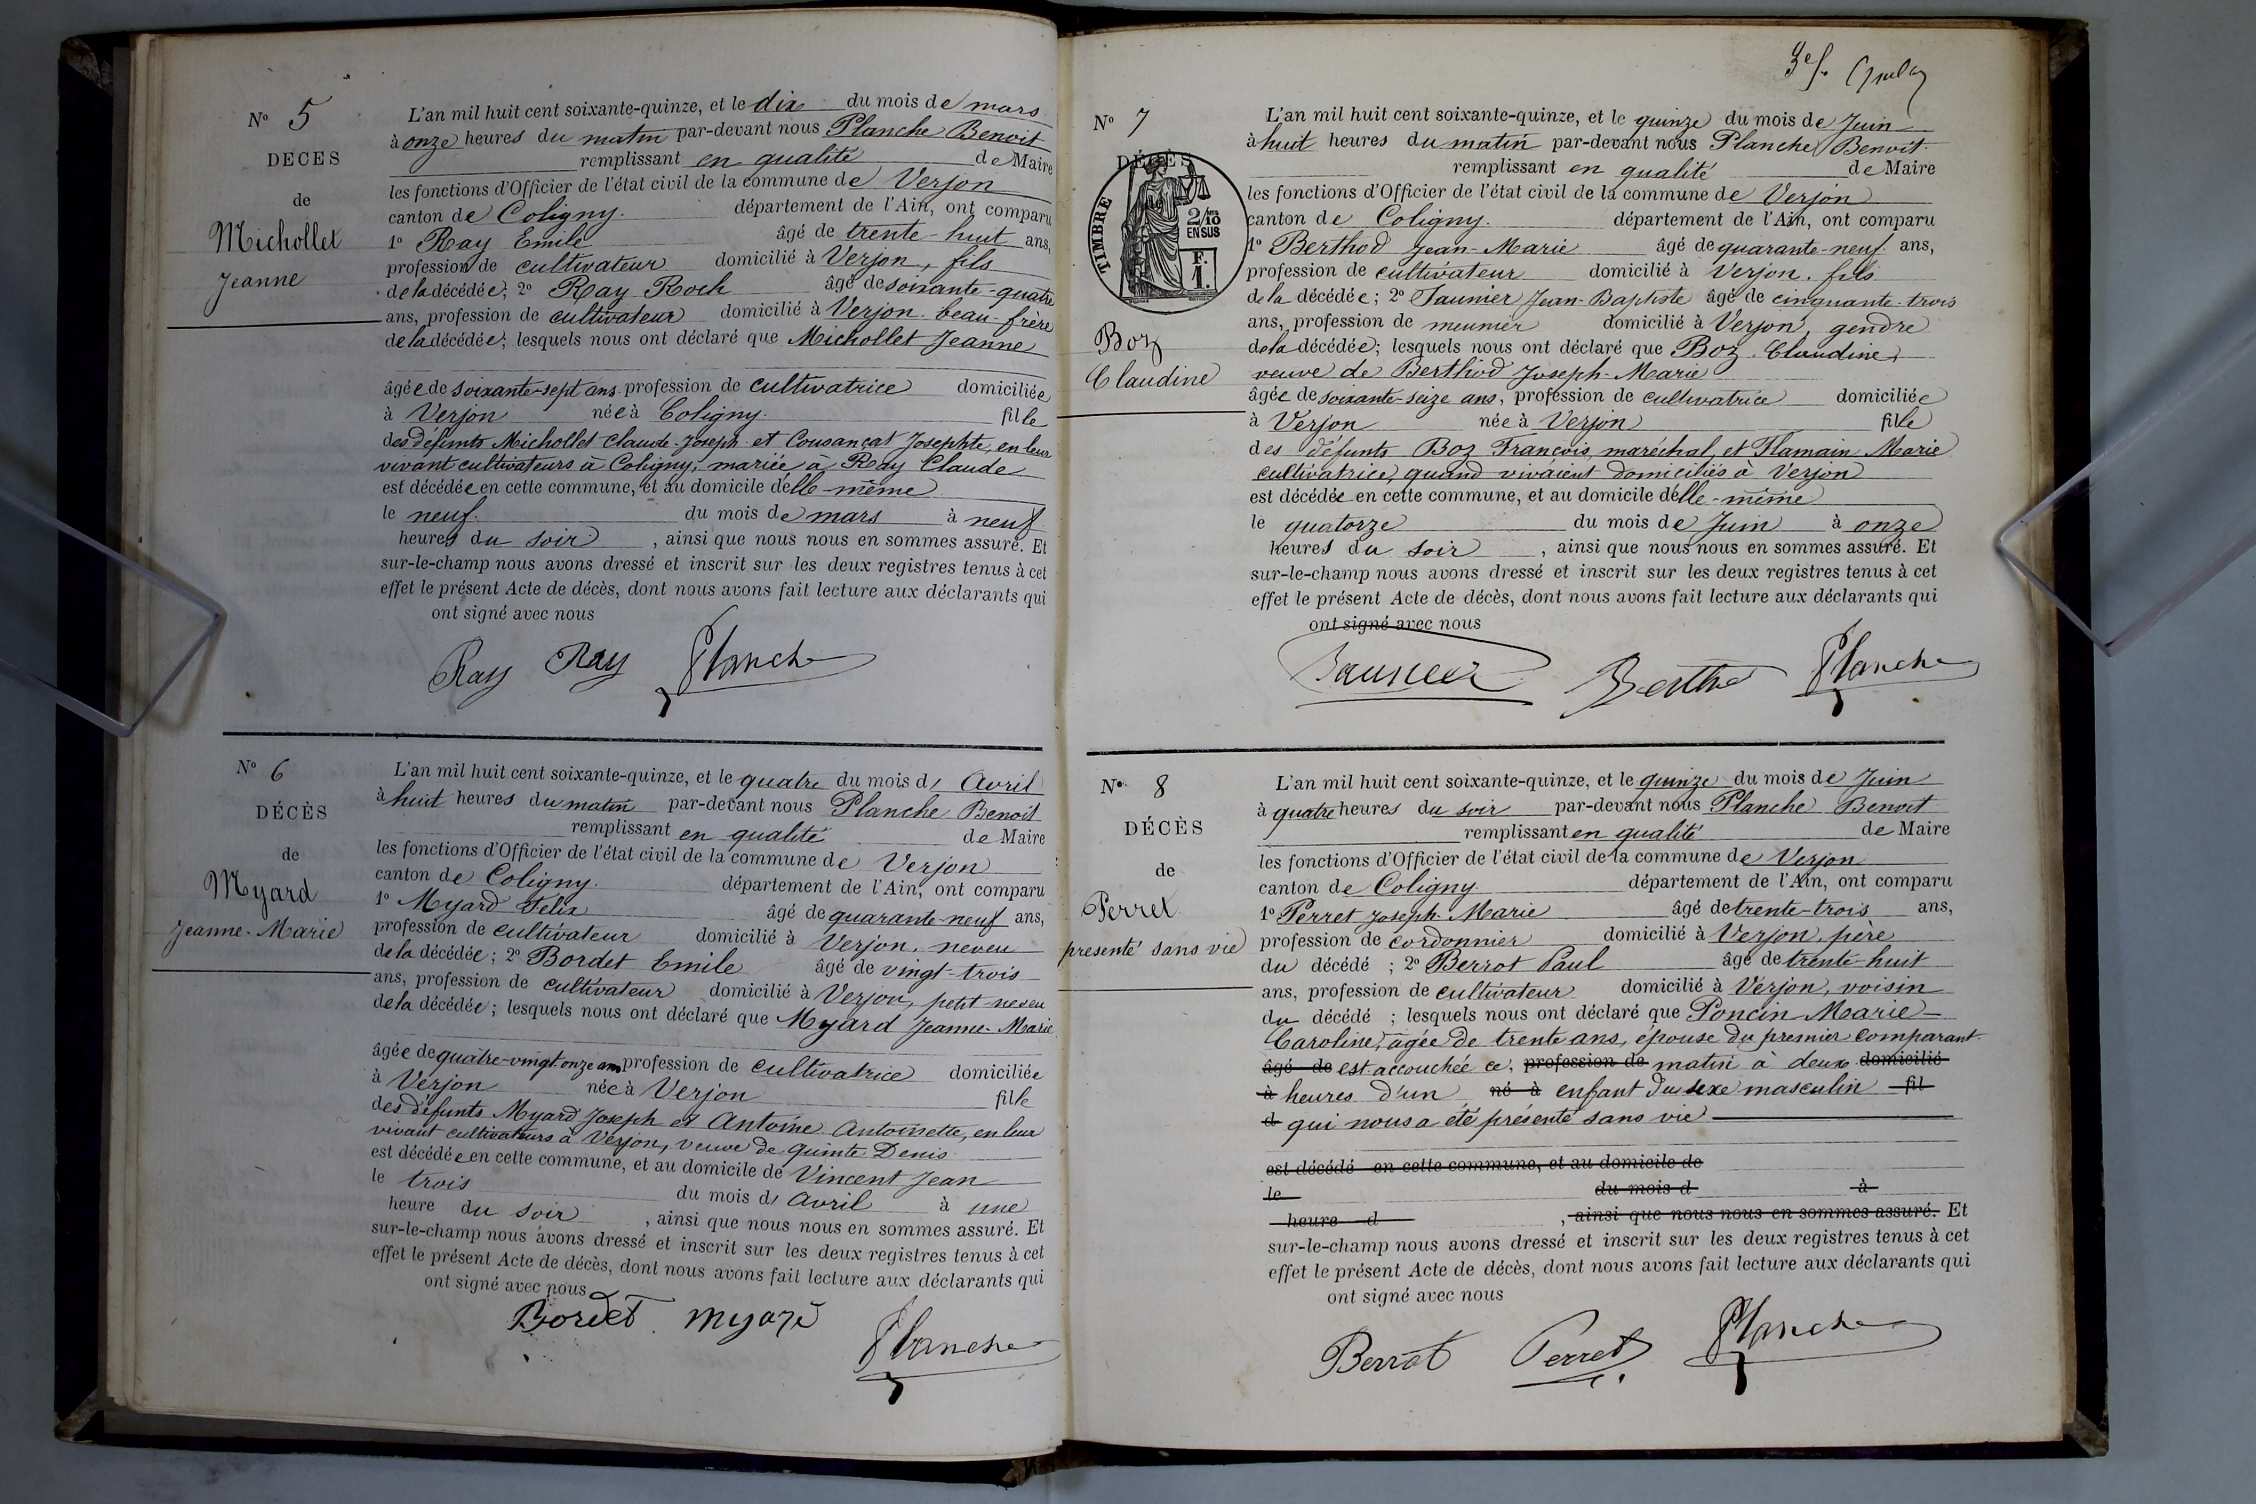 N° 5
DÉCÈS
de
Michollet
Jeanne
L'an mil huit cent soixante-quinze, et le dix du mois de mars
à onze heures du matin par-devant nous Planche Benoit
remplissant en qualité de Maire
les fonctions d'Officier de l'état civil de la commune de Verjon
canton de Coligny. département de l'Ain, ont comparu
1° Ray Emile âgé de trente-huit ans,
profession de cultivateur domicilié à Verjon, fils
de la décédée; 2° Ray Roch âgé de soixante-quatre
ans, profession de cultivateur domicilié à Verjon. beau-frère
de la décédée; lesquels nous ont déclaré que Michollet Jeanne
âgée de soixante-sept ans profession de cultivatrice domiciliée
à Verjon née à Coligny. fille
des défunts Michollet Claude-Joseph et Cousançat Josephte, en leur
vivant cultivateurs à Coligny; mariée à Ray Claude
est décédée en cette commune, et au domicile d'elle-même
le neuf. du mois de mars à neuf
heures du soir, ainsi que nous nous en sommes assuré. Et
sur-le-champ nous avons dressé et inscrit sur les deux registres tenus à cet
effet le présent Acte de décès, dont nous avons fait lecture aux déclarants qui
ont signé avec nous
Ray Ray Planche
N° 6
DÉCÈS
de
Myard
Jeanne-Marie
L'an mil huit cent soixante-quinze, et le quatre du mois d' Avril
à huit heures du matin par-devant nous Planche Benoit
remplissant en qualité de Maire
les fonctions d'Officier de l'état civil de la commune de Verjon
canton de Coligny. département de l'Ain, ont comparu
1° Myard Felix âgé de quarante-neuf ans,
profession de cultivateur domicilié à Verjon. neveu
de la décédée; 2° Bordet Emile âgé de vingt-trois
ans, profession de cultivateur domicilié à Verjon, petit-neveu
de la décédée; lesquels nous ont déclaré que Myard Jeanne-Marie
âgée de quatre-vingt onze ans profession de cultivatrice domiciliée
à Verjon née à Verjon fille
des défunts Myard Joseph et Antoine Antoinette, en leur
vivant cultivateurs à Verjon, veuve de Quinte Denis
est décédée en cette commune, et au domicile de Vincent Jean
le trois du mois d' Avril à une
heure du soir, ainsi que nous nous en sommes assuré. Et
sur-le-champ nous avons dressé et inscrit sur les deux registres tenus à cet
effet le présent Acte de décès, dont nous avons fait lecture aux déclarants qui
ont signé avec nous
Bordet Myard Planche
3e f.
N° 7
DÉCÈS
TIMBRE
2/10
EN SUS
F.
1.
Boz
Claudine
L'an mil huit cent soixante-quinze, et le quinze du mois de Juin
à huit heures du matin par-devant nous Planche Benoit
remplissant en qualité de Maire
les fonctions d'Officier de l'état civil de la commune de Verjon
canton de Coligny. département de l'Ain, ont comparu
1° Berthod Jean-Marie âgé de quarante-neuf ans,
profession de cultivateur domicilié à Verjon. fils
de la décédée; 2° Saunier Jean-Baptiste âgé de cinquante-trois
ans, profession de meunier domicilié à Verjon, gendre
de la décédée; lesquels nous ont déclaré que Boz Claudine,
veuve de Berthod Joseph-Marie
âgée de soixante-seize ans, profession de cultivatrice domiciliée
à Verjon née à Verjon fille
des défunts Boz François, maréchal, et Flamain Marie
cultivatrice, quand vivaient domiciliés à Verjon
est décédée en cette commune, et au domicile d'elle-même
le quatorze du mois de Juin à onze
heures du soir, ainsi que nous nous en sommes assuré. Et
sur-le-champ nous avons dressé et inscrit sur les deux registres tenus à cet
effet le présent Acte de décès, dont nous avons fait lecture aux déclarants qui
ont signé avec nous
Saunier Berthod Planche
N° 8
DÉCÈS
de
Perret
présenté sans vie
L'an mil huit cent soixante-quinze, et le quinze du mois de Juin
à quatre heures du soir par-devant nous Planche Benoit
remplissant en qualité de Maire
les fonctions d'Officier de l'état civil de la commune de Verjon
canton de Coligny. département de l'Ain, ont comparu
1° Perret Joseph-Marie âgé de trente-trois ans,
profession de cordonnier domicilié à Verjon, père
du décédé; 2° Berrot Paul âgé de trente-huit
ans, profession de cultivateur domicilié à Verjon, voisin
du décédé; lesquels nous ont déclaré que Poncin Marie-
Caroline, agée de trente ans, épouse du premier comparant
âgé de est accouchée ce, profession de matin à deux domicilié
à heures d'un né à enfant du sexe masculin fil
d qui nous a été présenté sans vie
est décédé en cette commune, et au domicile de
le du mois d à
heure d , ainsi que nous nous en sommes assuré. Et
sur-le-champ nous avons dressé et inscrit sur les deux registres tenus à cet
effet le présent Acte de décès, dont nous avons fait lecture aux déclarants qui
ont signé avec nous
Berrot Perret Planche